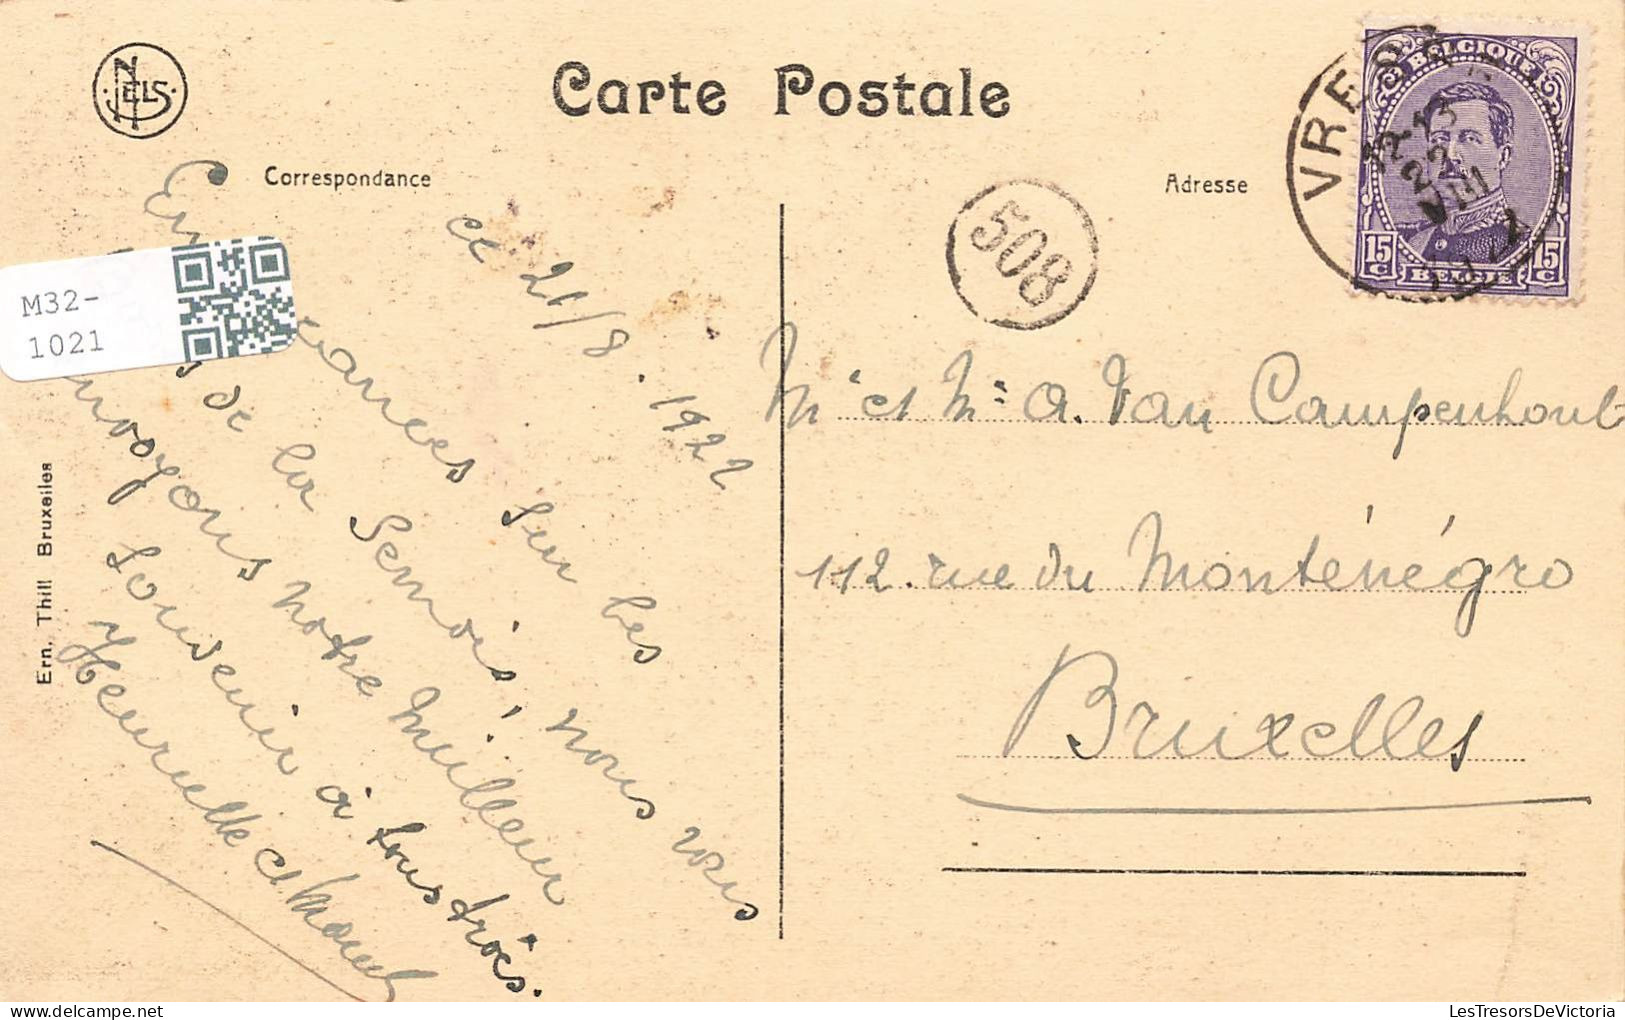 NELS
Carte Postale
Correspondance
Adresse
BELGIQUE
15 C
15 C
BELGIË
VRE
12-13
22
VIII
508
M32-
1021
Ern. Thill Bruxelles
ce 21/8.1922
En vacances sur les
de la Semois, nous vous
envoyons notre meilleur
souvenir à tous trois.
et
Mr et Me A. Van Campenhout
112. rue du Monténégro
Bruxelles
LesTresorsDeVictoria.com